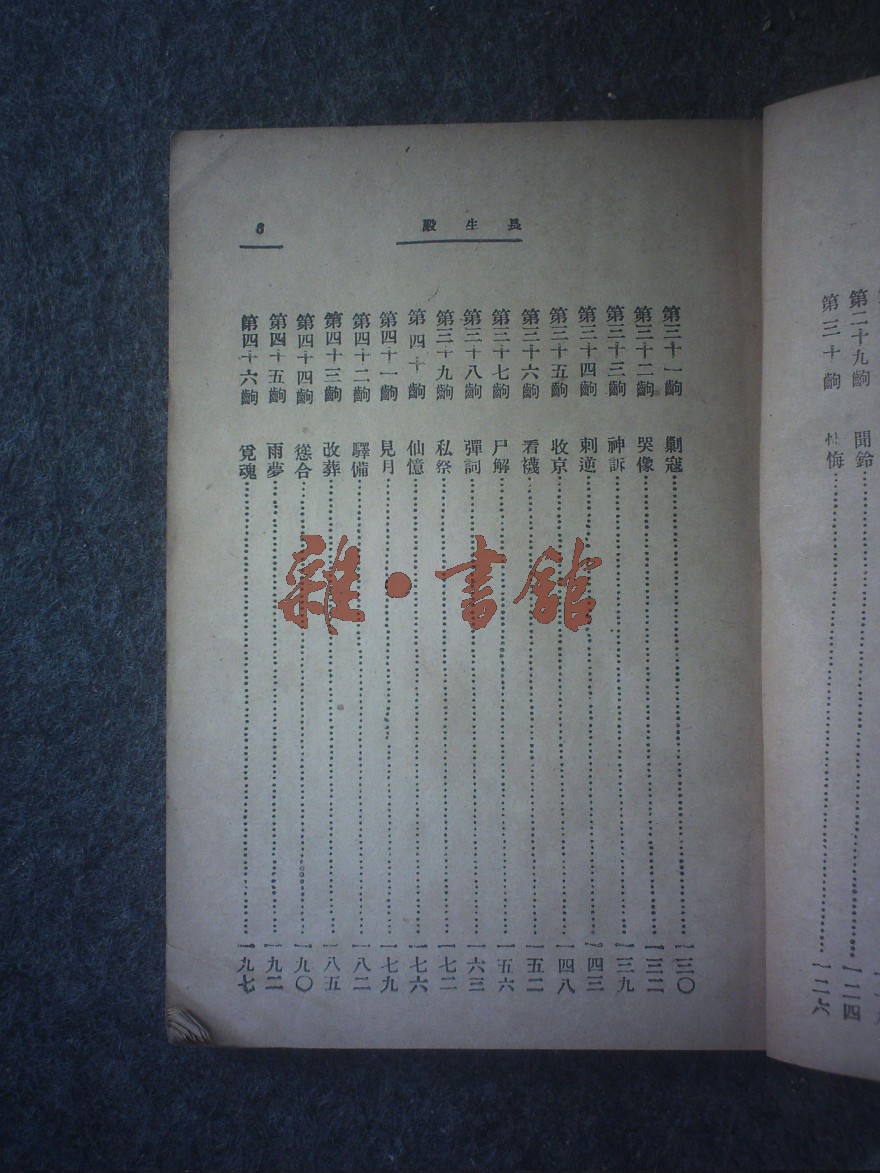 第二十九齣 聞鈴……一二四
第三十齣 情悔……一二六
長生殿
6
第三十一齣 剿寇……一三〇
第三十二齣 哭像……一三二
第三十三齣 神訴……一三九
第三十四齣 刺逆……一四三
第三十五齣 收京……一四八
第三十六齣 看襪……一五二
第三十七齣 尸解……一五六
第三十八齣 彈詞……一六三
第三十九齣 私祭……一七二
第四十齣 仙憶……一七六
第四十一齣 見月……一七九
第四十二齣 驛備……一八二
第四十三齣 改葬……一八五
第四十四齣 慫合……一九〇
第四十五齣 雨夢……一九二
第四十六齣 覓魂……一九七
雜·書館